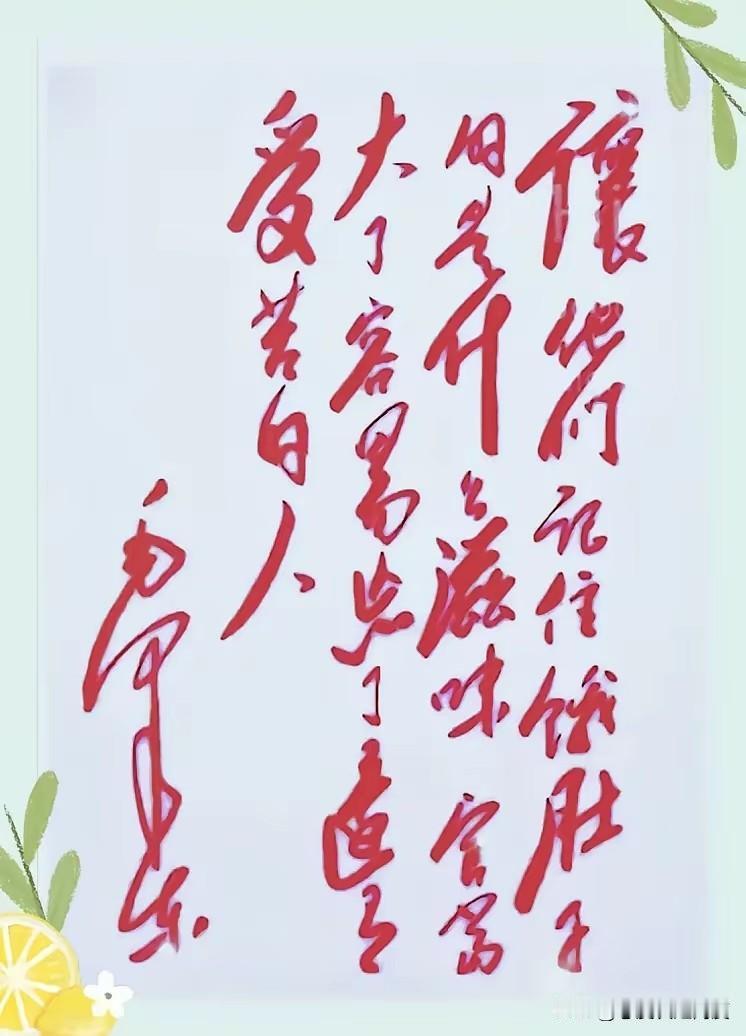 讓他们记住饿肚子
的是什么滋味 官当
大了容易忘了還有
受苦的人
毛泽东